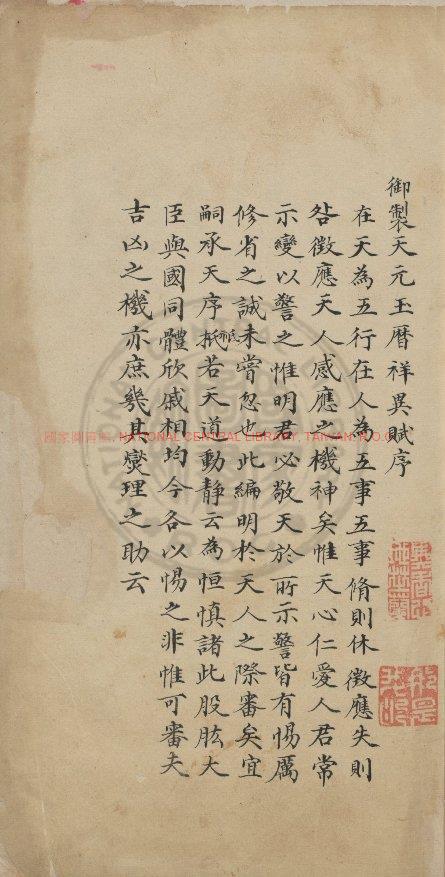 御製天元玉曆祥異賦序
在天為五行在人為五事五事脩則休徵應失則
咎徵應天人感應之機神矣惟天心仁愛人君常
示變以警之惟明君必敬天於所示警皆有惕厲
修省之誠未嘗忽也此編明於天人之際審矣宜
嗣承天序抵祗若天道動靜云為恒慎諸此股肱大
臣與國同體欣戚相均今各以惕之非惟可審夫
吉凶之機亦庶幾其燮理之助云
國家圖書館, NATIONAL CENTRAL LIBRARY, TAIWAN, R.O.C.